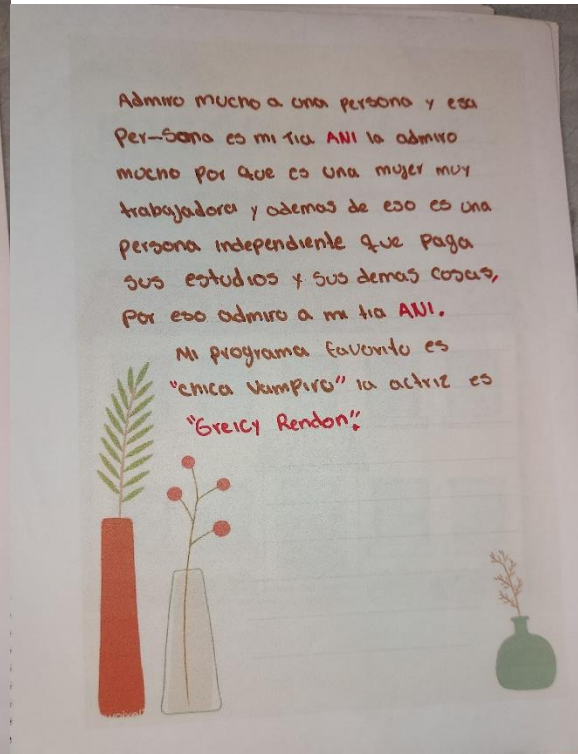 Admiro mucho a una persona y esa
Per-Sona es mi tia ANI la admiro
mucho Por que es una mujer muy
trabajadora y ademas de eso es una
Persona independiente que paga
sus estudios y sus demas cosas,
Por eso admiro a mi tia ANI.
Mi programa favorito es
"chica Vampiro" la actriz es
"Greicy Rendon".